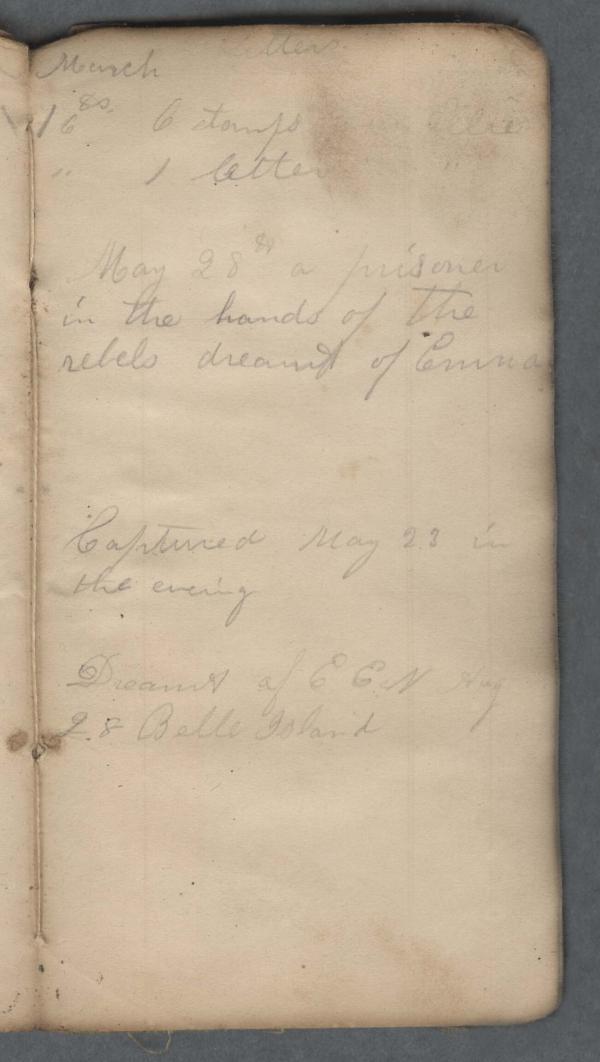 March
16 6 stamps
" 1 letter "
May 28th a prisoner
in the hands of the
rebels dreamt of Emma
Captured May 23 in
the evenig
Dreamt of E E N Aug
28 Belle Island